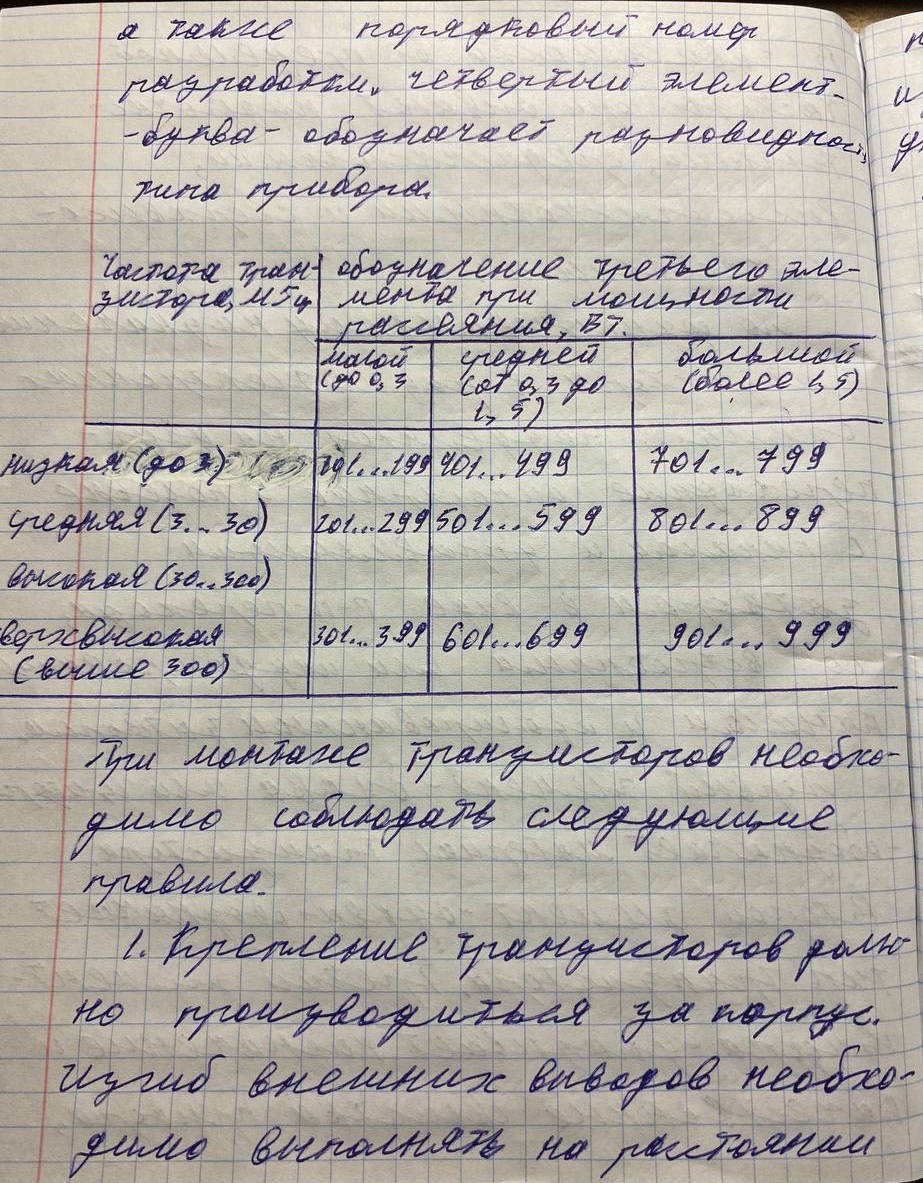 а также порядковый номер
разработки. четвертый элемент-
-буква- обозначает разновидность
типа прибора.
Частота тран-
зистора, МГц
обозначение третьего эле-
мента при мощности
рассеяния, Вт.
малой
(до 0,3
средней
(от 0,3 до
1,5)
большой
(более 1,5)
низкая (до 3) 101...199 401...499 701...799
средняя (3...30) 201...299 501...599 801...899
высокая (30...300)
сверхвысокая 301...399 601...699 901...999
(выше 300)
При монтаже транзисторов необхо-
димо соблюдать следующие
правила.
1. Крепление транзисторов долж-
но производиться за корпус.
Изгиб внешних выводов необхо-
димо выполнять на расстоянии